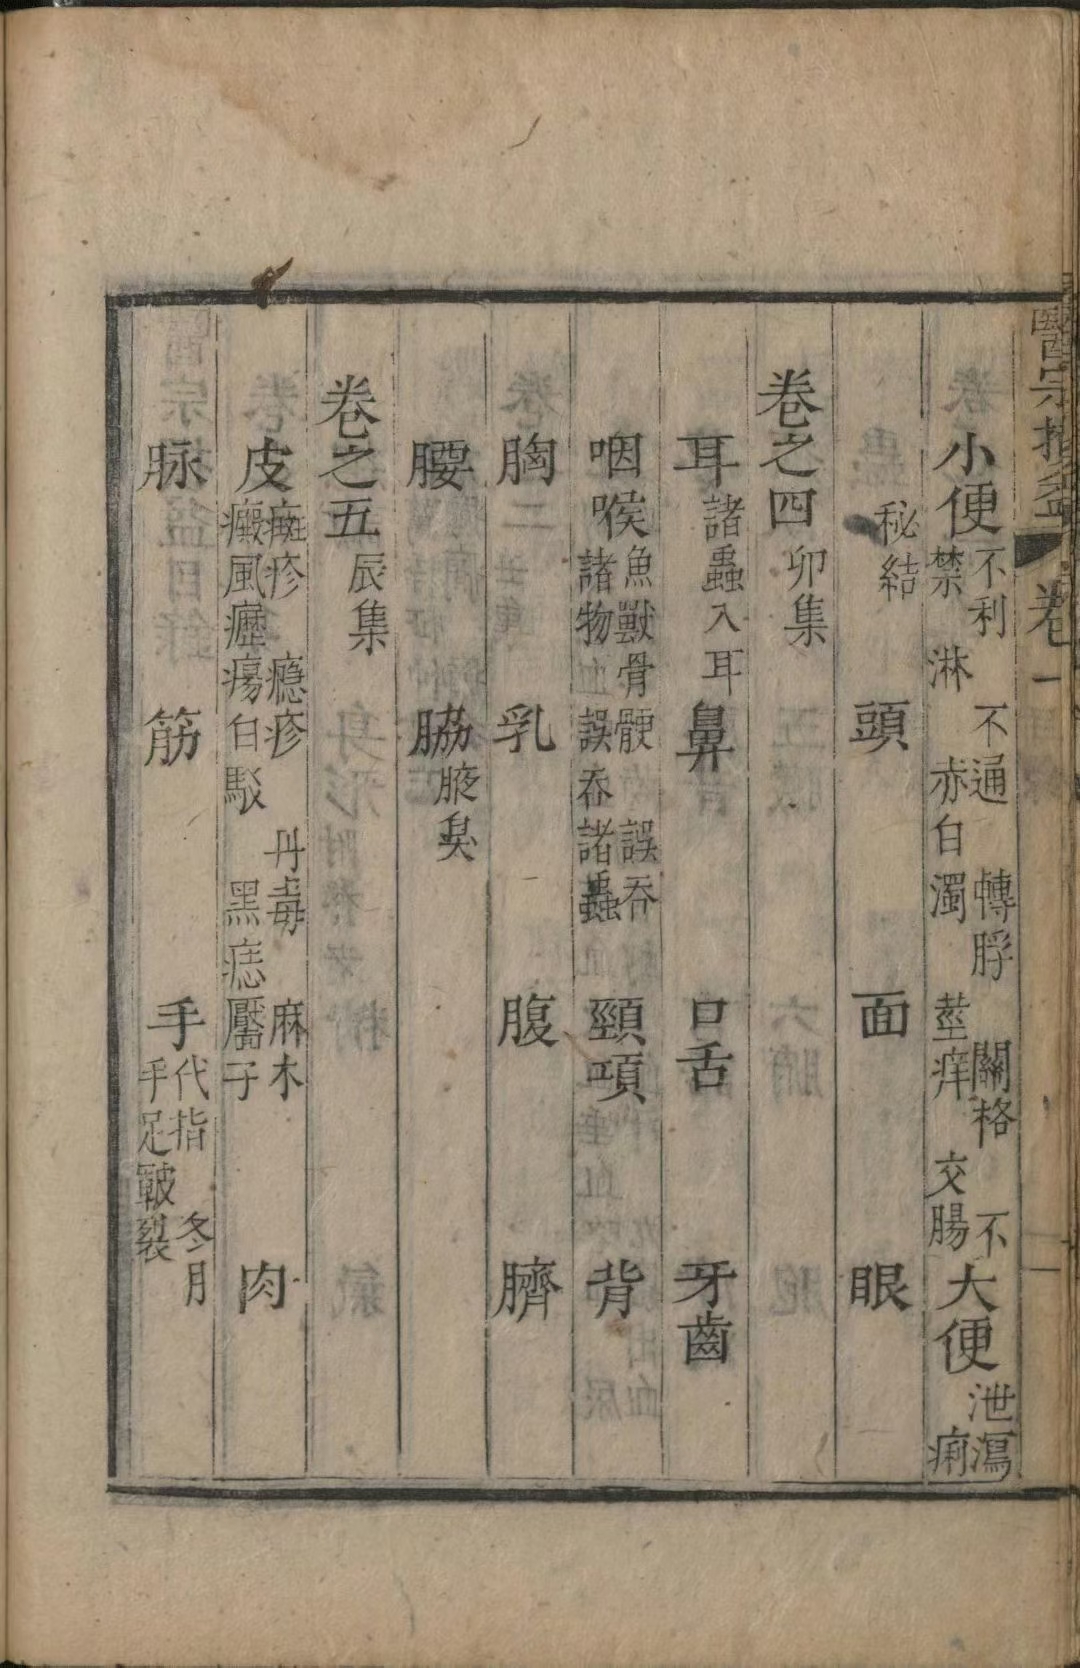 醫宗指𥁞 卷一
小便 不利 不通 轉脬 關格 不
禁 淋 赤白濁 莖痒 交腸 大便 泄瀉
痢
秘結 頭 面 眼
卷之四 卯集
耳 諸蟲入耳 鼻 口舌 牙齒
咽喉 魚獸骨骾 誤吞
諸物 誤吞諸蟲 頸項 背
胸 乳 腹 臍
腰 脇 腋臭
卷之五 辰集
皮 癍疹 癮疹 丹毒 麻木
癜風癧瘍白駁 黑痣靨子 肉
脉 筋 手 代指 冬月
手足皸裂